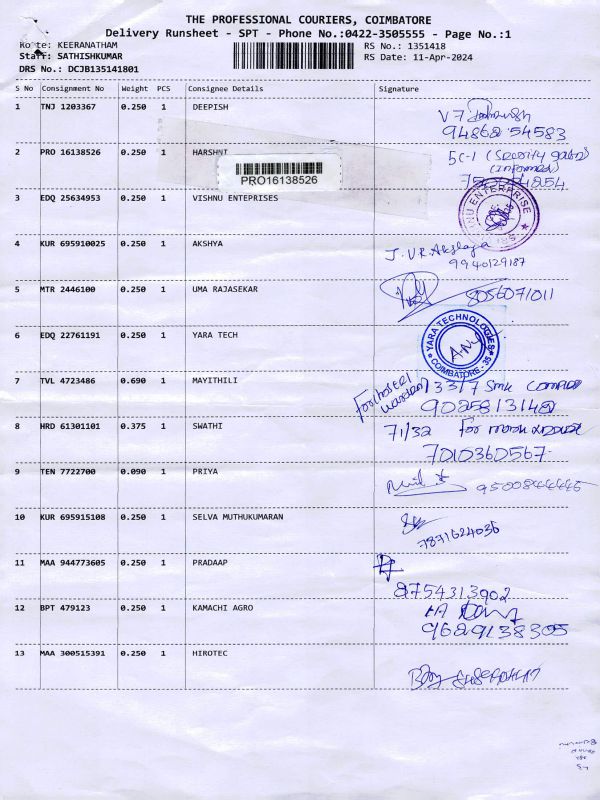 THE PROFESSIONAL COURIERS, COIMBATORE
Delivery Runsheet - SPT - Phone No.:0422-3505555 - Page No.:1
Route: KEERANATHAM RS No.: 1351418
Staff: SATHISHKUMAR RS Date: 11-Apr-2024
DRS No.: DCJB135141801
S No Consignment No Weight PCS Consignee Details Signature
1 TNJ 1203367 0.250 1 DEEPISH
9486254583
2 PRO 16138526 0.250 1 HARSHNI 5C-1 (Security gate)
(informed)
PRO16138526
3 EDQ 25634953 0.250 1 VISHNU ENTEPRISES
NU ENTERPRISE
4 KUR 695910025 0.250 1 AKSHYA J.V.R.Akshaya
9940129187
5 MTR 2446100 0.250 1 UMA RAJASEKAR 8056071011
6 EDQ 22761191 0.250 1 YARA TECH
YARA TECHNOLOGIES
COIMBATORE - 35
7 TVL 4723486 0.690 1 MAYITHILI
9025813142
8 HRD 61301101 0.375 1 SWATHI 71/32 For
7010360567
9 TEN 7722700 0.090 1 PRIYA
10 KUR 695915108 0.250 1 SELVA MUTHUKUMARAN
7871624036
11 MAA 944773605 0.250 1 PRADAAP
8754313902
12 BPT 479123 0.250 1 KAMACHI AGRO
9629138305
13 MAA 300515391 0.250 1 HIROTEC